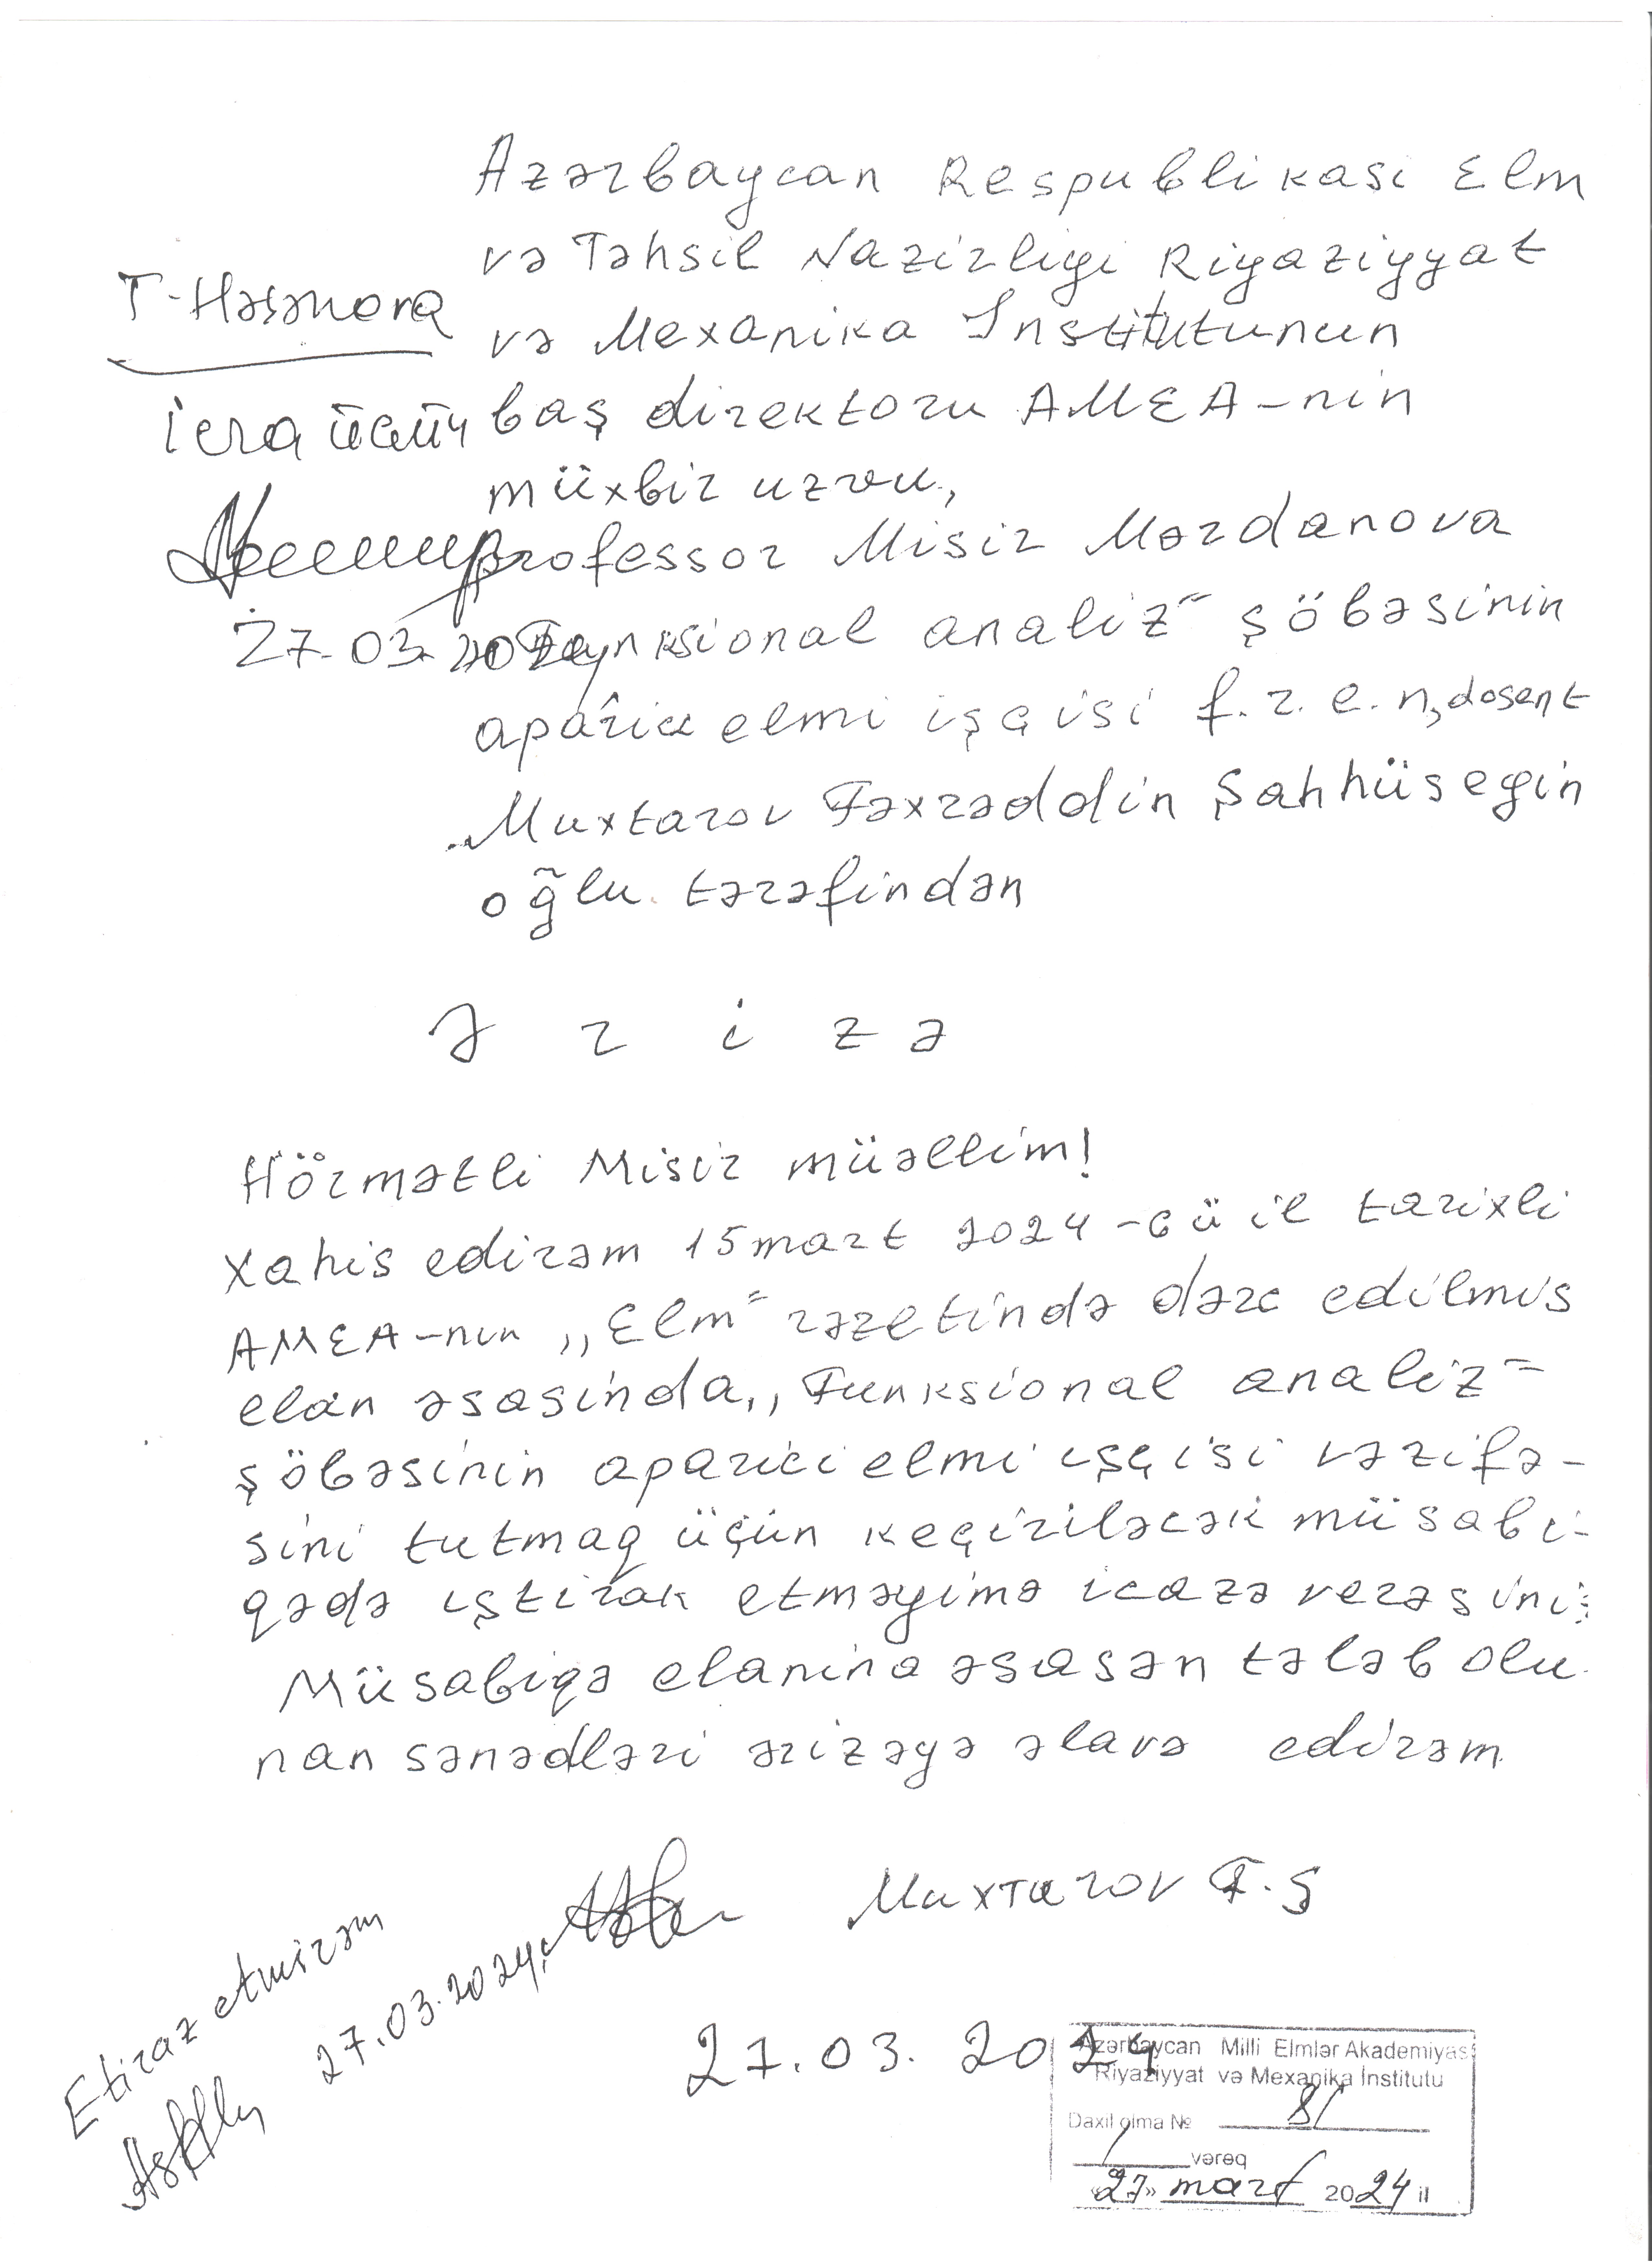 Azərbaycan Respublikasi Elm
və Təhsil Nazirligi Riyaziyyat
T. Həsənova
və Mexanika Institutunun
icra üçün
baş direktoru AMEA-nin
müxbir uzvu,
professor Misir Mərdanova
27.03.2024
Funksional analiz" şöbəsinin
aparıcı elmi işçisi f.r.e.n, dosent
Muxtarov Fəxrəddin Şahhüseyin
oğlu tərəfindən
Ə r i z ə
Hörmətli Misir müəllim!
Xahis edirəm 15 mart 2024-cü il tarixli
AMEA-nın ,,Elm" rəzetində dərc edilmis
elan əsasinda ,,Funksional analiz"
şöbəsinin aparici elmi işçisi vəzifə-
sini tutmaq üçün keçiriləcək müsabi-
qədə iştirak etməyimə icazə verəsiniz
Müsabiqə elanina əsasən tələb olu-
nan sənədləri ərizəyə əlavə edirəm.
Muxtarov F.Ş
Etiraz etmirəm
27.03.2024
27.03.2024
Azərbaycan Milli Elmlər Akademiyası
Riyaziyyat və Mexanika İnstitutu
Daxil olma № 81
1 vərəq
«27» mart 2024 il